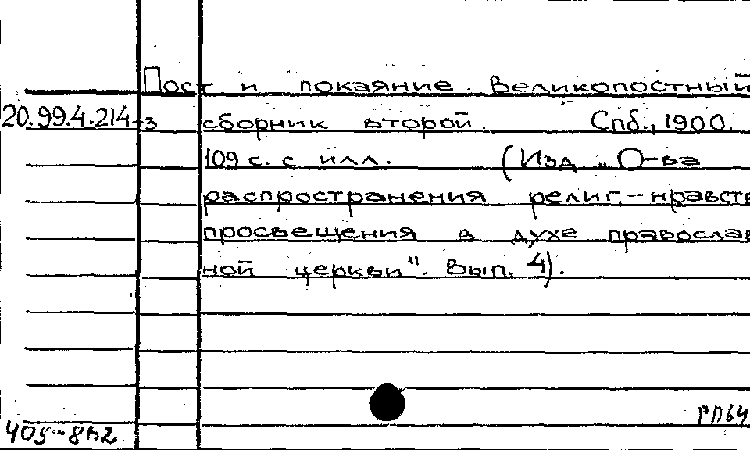 Пост и покаяние. Великопостный
20.99.4.214-з сборник второй. Спб., 1900.
109 с. с илл. (Изд. „О-ва
распространения религ.-нравств
просвещения в духе православ
ной церкви". Вып. 4).